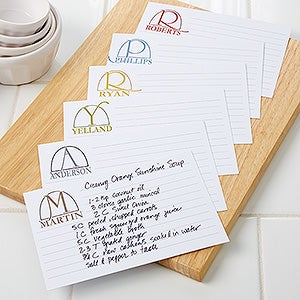 R
ROBERTS
P
PHILLIPS
R
RYAN
Y
YELLAND
A
ANDERSON
M
MARTIN
Creamy Orange Sunshine Soup
1-2 tsp coconut oil
3 cloves garlic minced
2 C sweet onion
5 C peeled, chopped carrots
1 C fresh squeezed orange juice
5 C vegetable broth
2-3 T grated ginger
3/4 C raw cashews soaked in water
Salt & pepper to taste